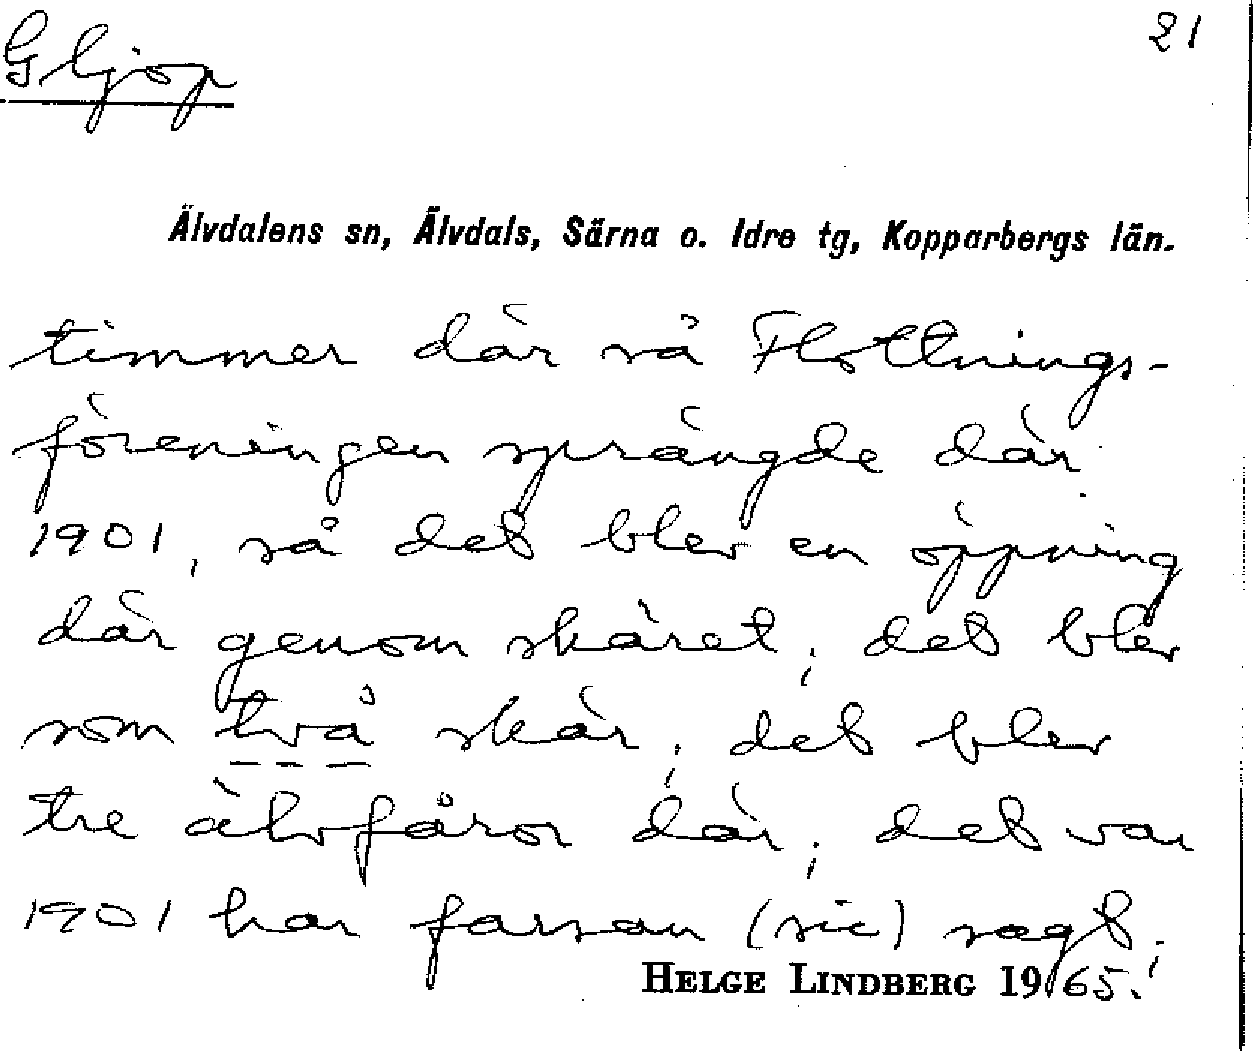 21
Gljöp
Älvdalens sn, Älvdals, Särna o. Idre tg, Kopparbergs län.
timmer där så Flottnings-
föreningen sprängde där
1901, så det blev en öppning
där genom skäret; det blev
som två skär; det blev
tre älvfåror där; det var
1901 har farsan (sic) sagt;
HELGE LINDBERG 1965.